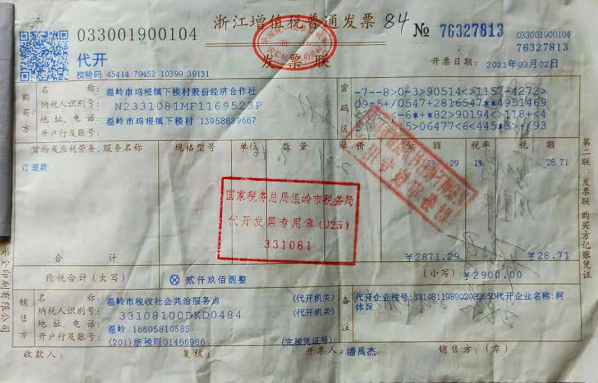 033001900104
浙江增值税普通发票
84
№ 76327813
033001900104
76327813
代开
校验码 45414 79452 10399 39131
发票联
开票日期: 2021年03月02日
购买方
名称: 温岭市坞根镇下楼村股份经济合作社
纳税人识别号: N2331081MF1169523P
地址、电话: 温岭市坞根镇下楼村 13958639667
开户行及账号:
密码区
货物或应税劳务、服务名称
规格型号
单位
数量
单价
金额
税率
税额
灯笼款
1%
28.71
国家税务总局温岭市税务局
代开发票专用章(J25)
331081
¥2871.29
¥28.71
价税合计(大写)
ⓧ贰仟玖佰圆整
(小写) ¥2900.00
销售方
名称: 温岭市税收社会共治服务点 (代开机关)
纳税人识别号: 33108100DKD0484 (代开机关)
地址、电话: 温岭 18605810585
开户行及账号: (201)浙税现01466986 (完税凭证号)
备注
代开企业名称: 柯体兵
收款人:
复核:
开票人: 潘禹杰
销售方: (章)
第二联: 发票联 购买方记账凭证